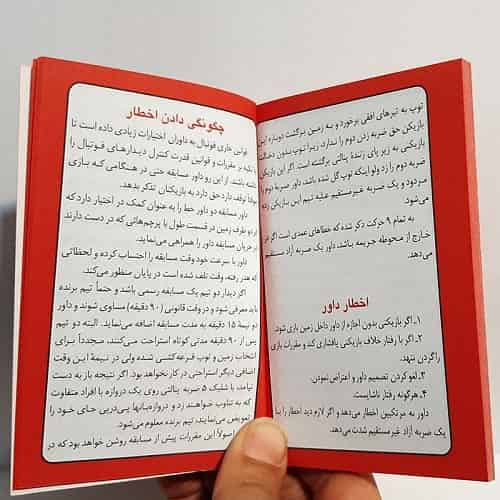 توپ به تیرهای افقی برخورد و به زمین برگشت دوباره این
بازیکن حق ضربه زدن دوم را ندارد، زیرا توپ بدون دخالت
بازیکنی به زیر پای زنندهٔ پنالتی برگشته است. اگر این بازیکن
ضربه دوم را زد ولو اینکه توپ گل شده باشد، داور ضربه دوم را
مردود و یک ضربه غیرمستقیم علیه تیم این بازیکن
می‌شود.
به تمام ۹ حرکت ذکر شده که خطاهای عمدی است اگر در
خارج از محوطه جریمه باشد، داور یک ضربه آزاد مستقیم
می‌دهد.
اخطار داور
۱ـ اگر بازیکنی بدون اجازه از داور داخل زمین بازی شود.
۲ـ اگر با رفتار خلاف بازیکنی پافشاری کند و مقررات بازی
را گردن ننهد.
۳ـ لغو کردن تصمیم داور و اعتراض نمودن.
۴ـ هرگونه رفتار ناشایست.
داور به مرتکبین اخطار می‌دهد و اگر لازم دید اخطار را با
یک ضربه آزاد غیرمستقیم شدت می‌دهد.
چگونگی دادن اخطار
قوانین جاری فوتبال به داوران اختیارات زیادی داده است تا
با تکیه بر مقررات و قوانین قدرت کنترل دیدارهای فوتبال را
داشته باشند. از این رو داور مسابقه حتی در هنگامی که بازی
موقتاً توقف دارد حق دارد به بازیکنان تذکر بدهد.
داور مسابقه دو داور خط را به عنوان کمک در اختیار دارد که
در دو طرف زمین در قسمت طول با پرچم‌هایی که در دست دارند
در جریان مسابقه داور را همراهی می‌نماید.
داور با سرعت خود وقت مسابقه را احتساب کرده و لحظاتی
که هدر رفته، وقت تلف شده است در پایان منظور می‌کند.
اگر دیدار دو تیم یک مسابقه رسمی باشد و حتماً تیم برنده
باید معرفی شود و در وقت قانونی (۹۰ دقیقه) مساوی شوند و داور
دو نیمهٔ ۱۵ دقیقه به مدت مسابقه اضافه می‌نماید. البته دو تیم
پس از ۹۰ دقیقه مدتی کوتاه استراحت می‌کنند، مجدداً برای
انتخاب زمین و توپ قرعه‌کشی شده ولی در نیمهٔ این وقت
اضافی دیگر استراحتی در کار نخواهد بود. اگر نتیجه باز به دست
نیامد، با شلیک ۵ ضربه پنالتی روی یک دروازه با افراد متفاوت
که به تناوب خواهند زد و دروازه‌بانها پی‌درپی جای خود را
تعویض می‌نمایند، تیم برنده معلوم می‌شود.
اصولاً این مقررات پیش از مسابقه روشن خواهد بود که در